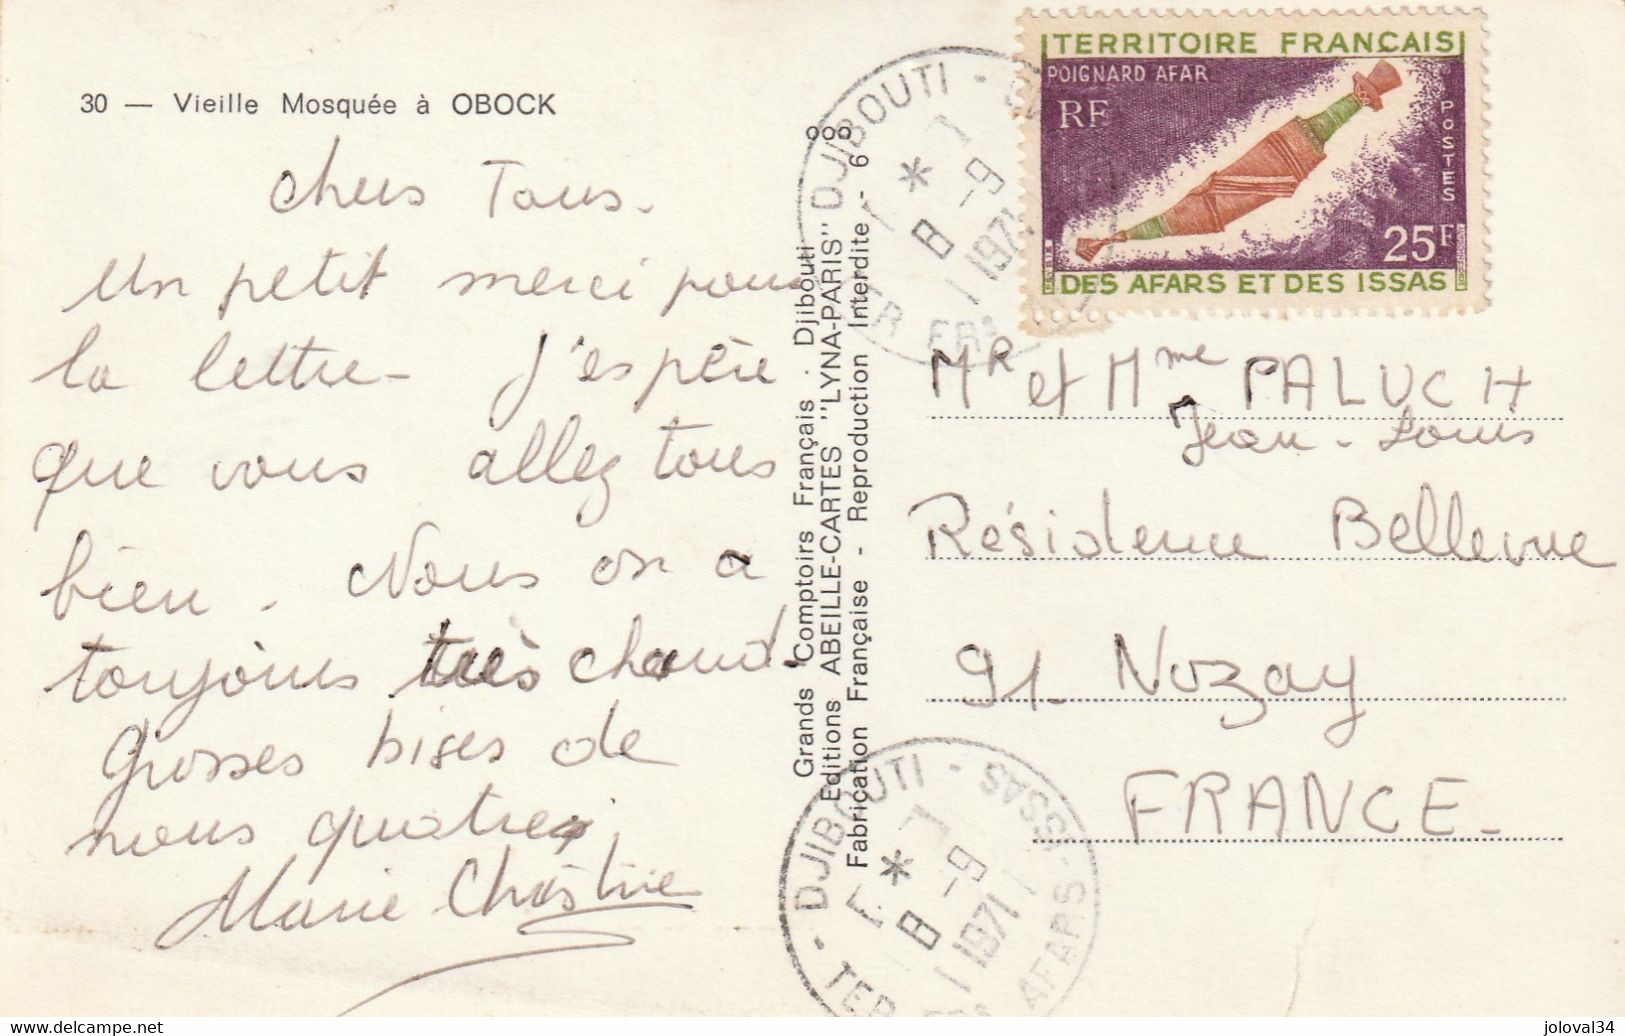 30 — Vieille Mosquée à OBOCK
Chers Tous.
Un petit merci pour
la lettre - J'espère
que vous allez tous
bien. Nous on a
toujours très chaud.
Grosses bises de
nous quatre,
Marie Christine
Grands Comptoirs Français. Djibouti
Editions ABEILLE-CARTES "LYNA-PARIS" 000
Fabrication Française - Reproduction Interdite - 6
TERRITOIRE FRANCAIS
POIGNARD AFAR
RF
POSTES
25F
DES AFARS ET DES ISSAS
DJIBOUTI -
*
8 -9
1971
TER FRS
MR et Mme PALUCH
Jean-Louis
Résidence Bellevue
91 - Nozay
FRANCE -
- DJIBOUTI - ISSAS
*
8 -9
1971
TER AFARS
joloval34